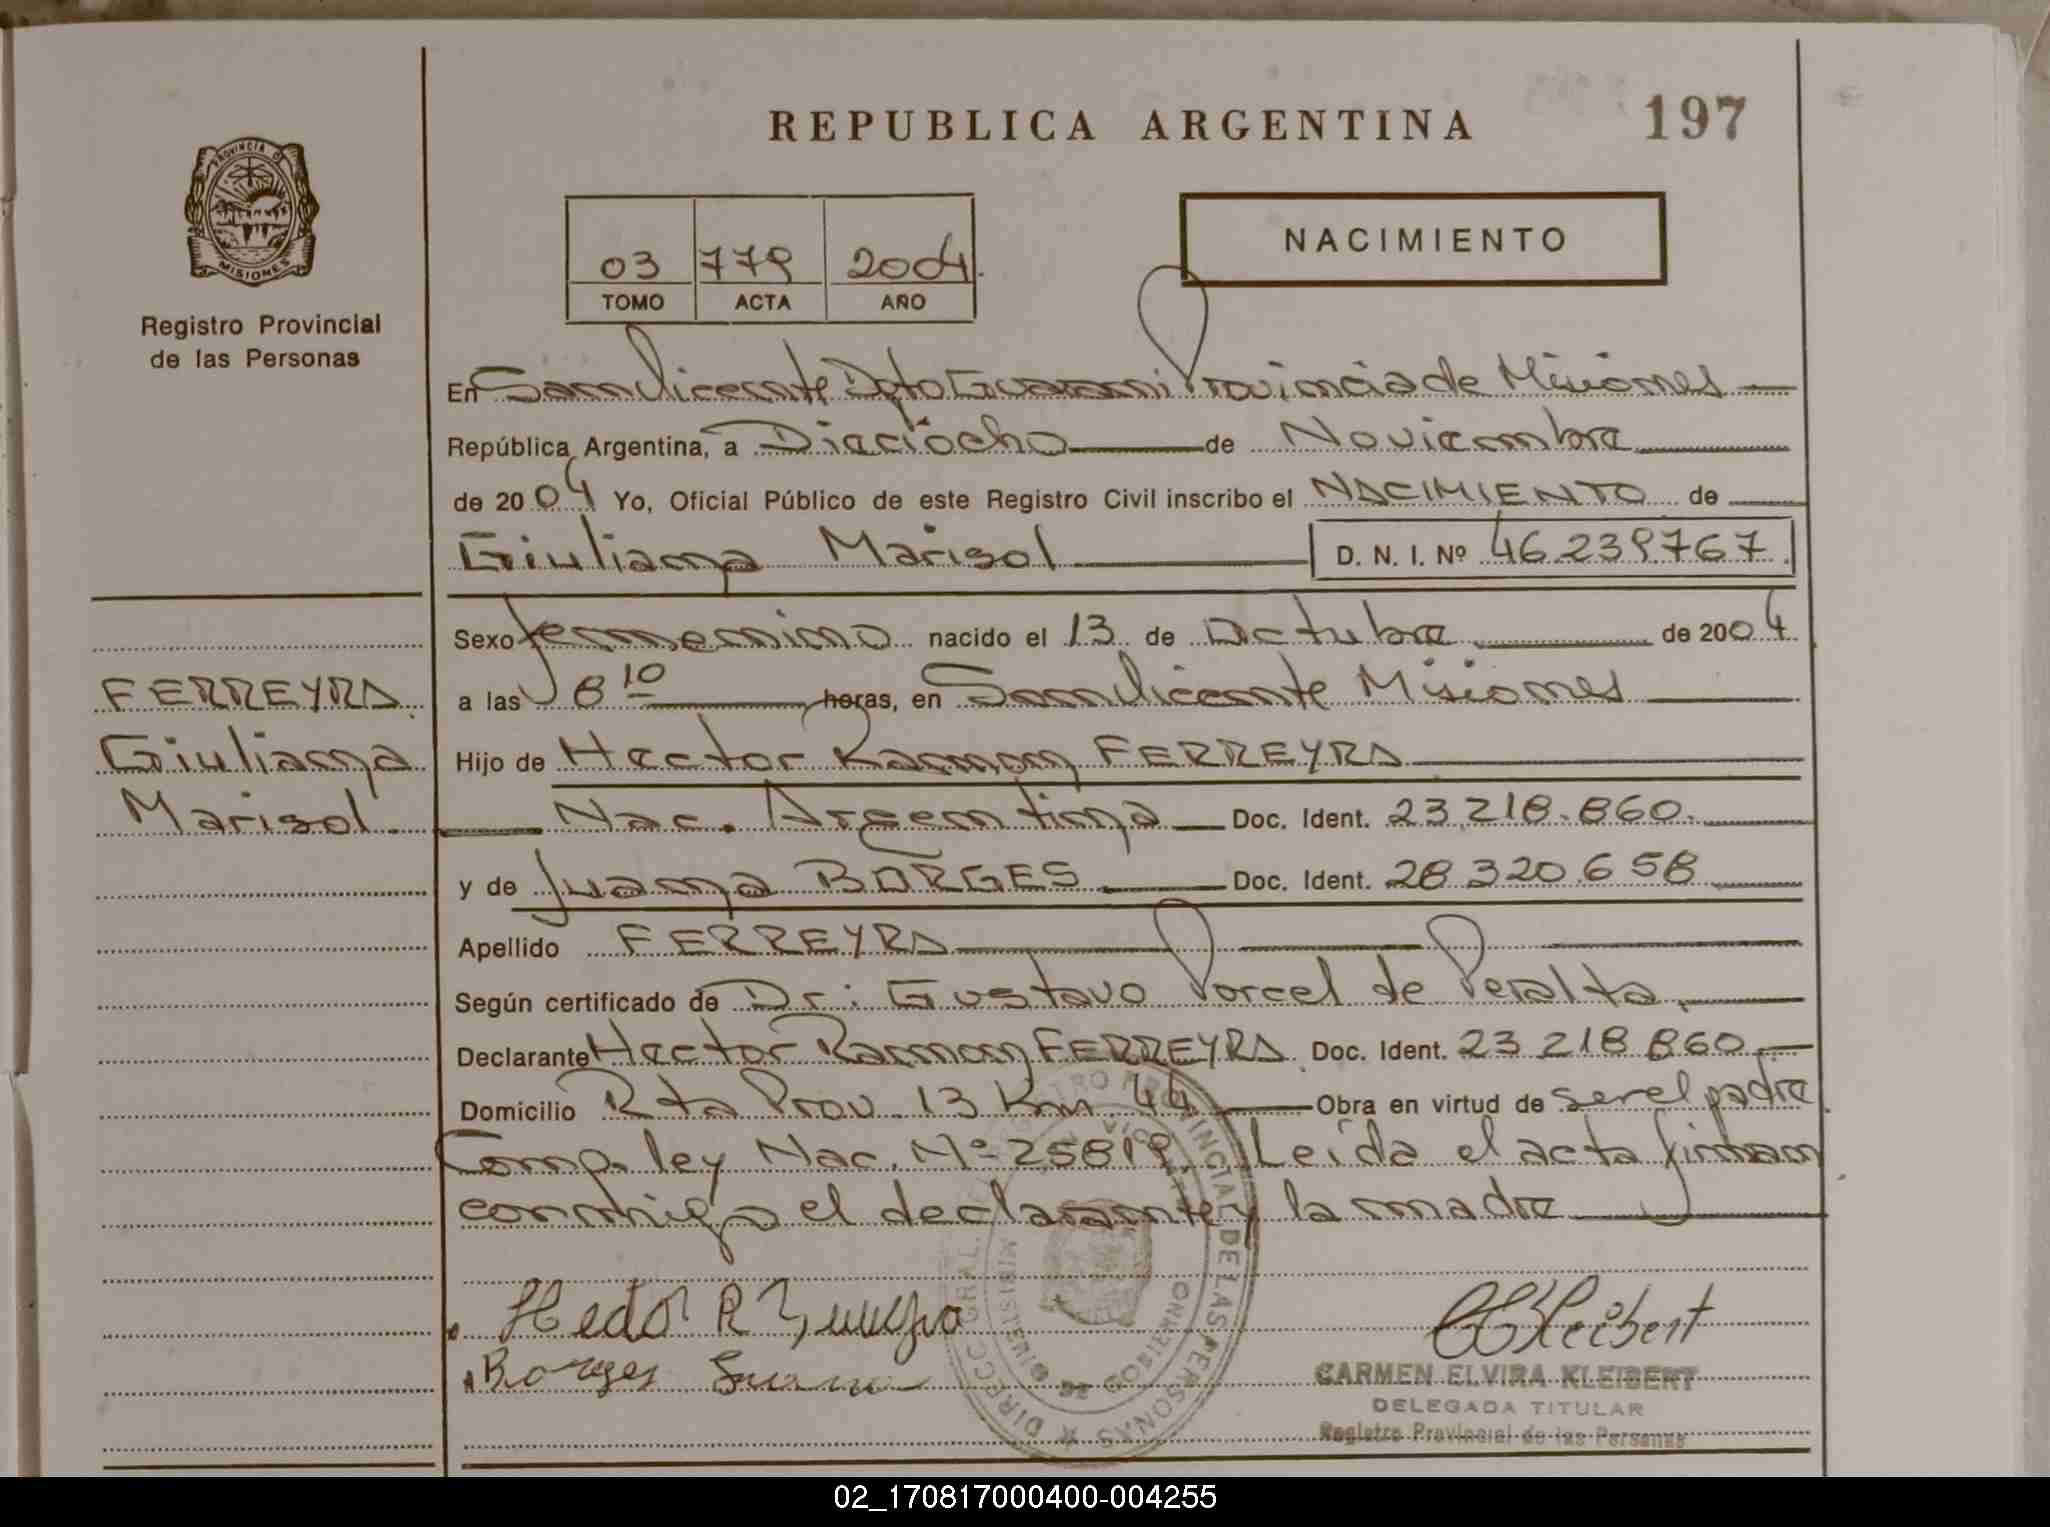 REPUBLICA ARGENTINA
197
PROVINCIA D
MISIONES
Registro Provincial
de las Personas
03 779 2004
TOMO ACTA AÑO
NACIMIENTO
En San Vicente Dpto Guarani Provincia de Misiones
República Argentina, a Dieciocho de Noviembre
de 2004 Yo, Oficial Público de este Registro Civil inscribo el NACIMIENTO de
Giuliana Marisol D. N. I. Nº 46.239.767.
Sexo femenino nacido el 13 de Octubre de 2004
a las 8 10 horas, en San Vicente Misiones
FERREYRA
Giuliana
Marisol
Hijo de Hector Ramon FERREYRA
Nac. Argentina Doc. Ident. 23.218.860.
y de Juana BORGES Doc. Ident. 28 320.658
Apellido FERREYRA
Según certificado de Dr: Gustavo Porcel de Peralta
Declarante Hector Ramon FERREYRA Doc. Ident. 23 218 860
Domicilio Rta Prov. 13 Km 44 Obra en virtud de ser el padre
Comp. ley Nac. Nº 25819. Leída el acta firman
conmigo el declarante y la madre
Borges Juana
CKleibert
CARMEN ELVIRA KLEIBERT
DELEGADA TITULAR
Registro Provincial de las Personas
02_170817000400-004255